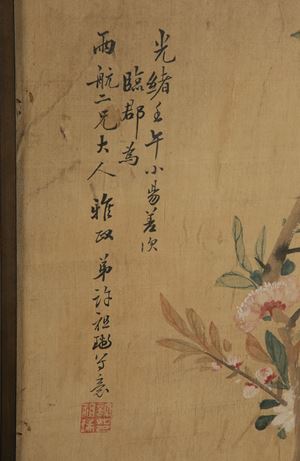 光緒壬午小陽薯次
臨郡為
雨航二兄大人雅政弟許祖瑞寫意